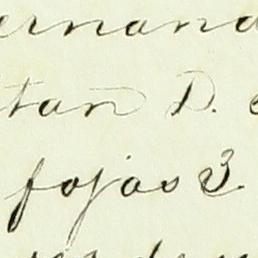 ernand
tan D.
fojas 3.